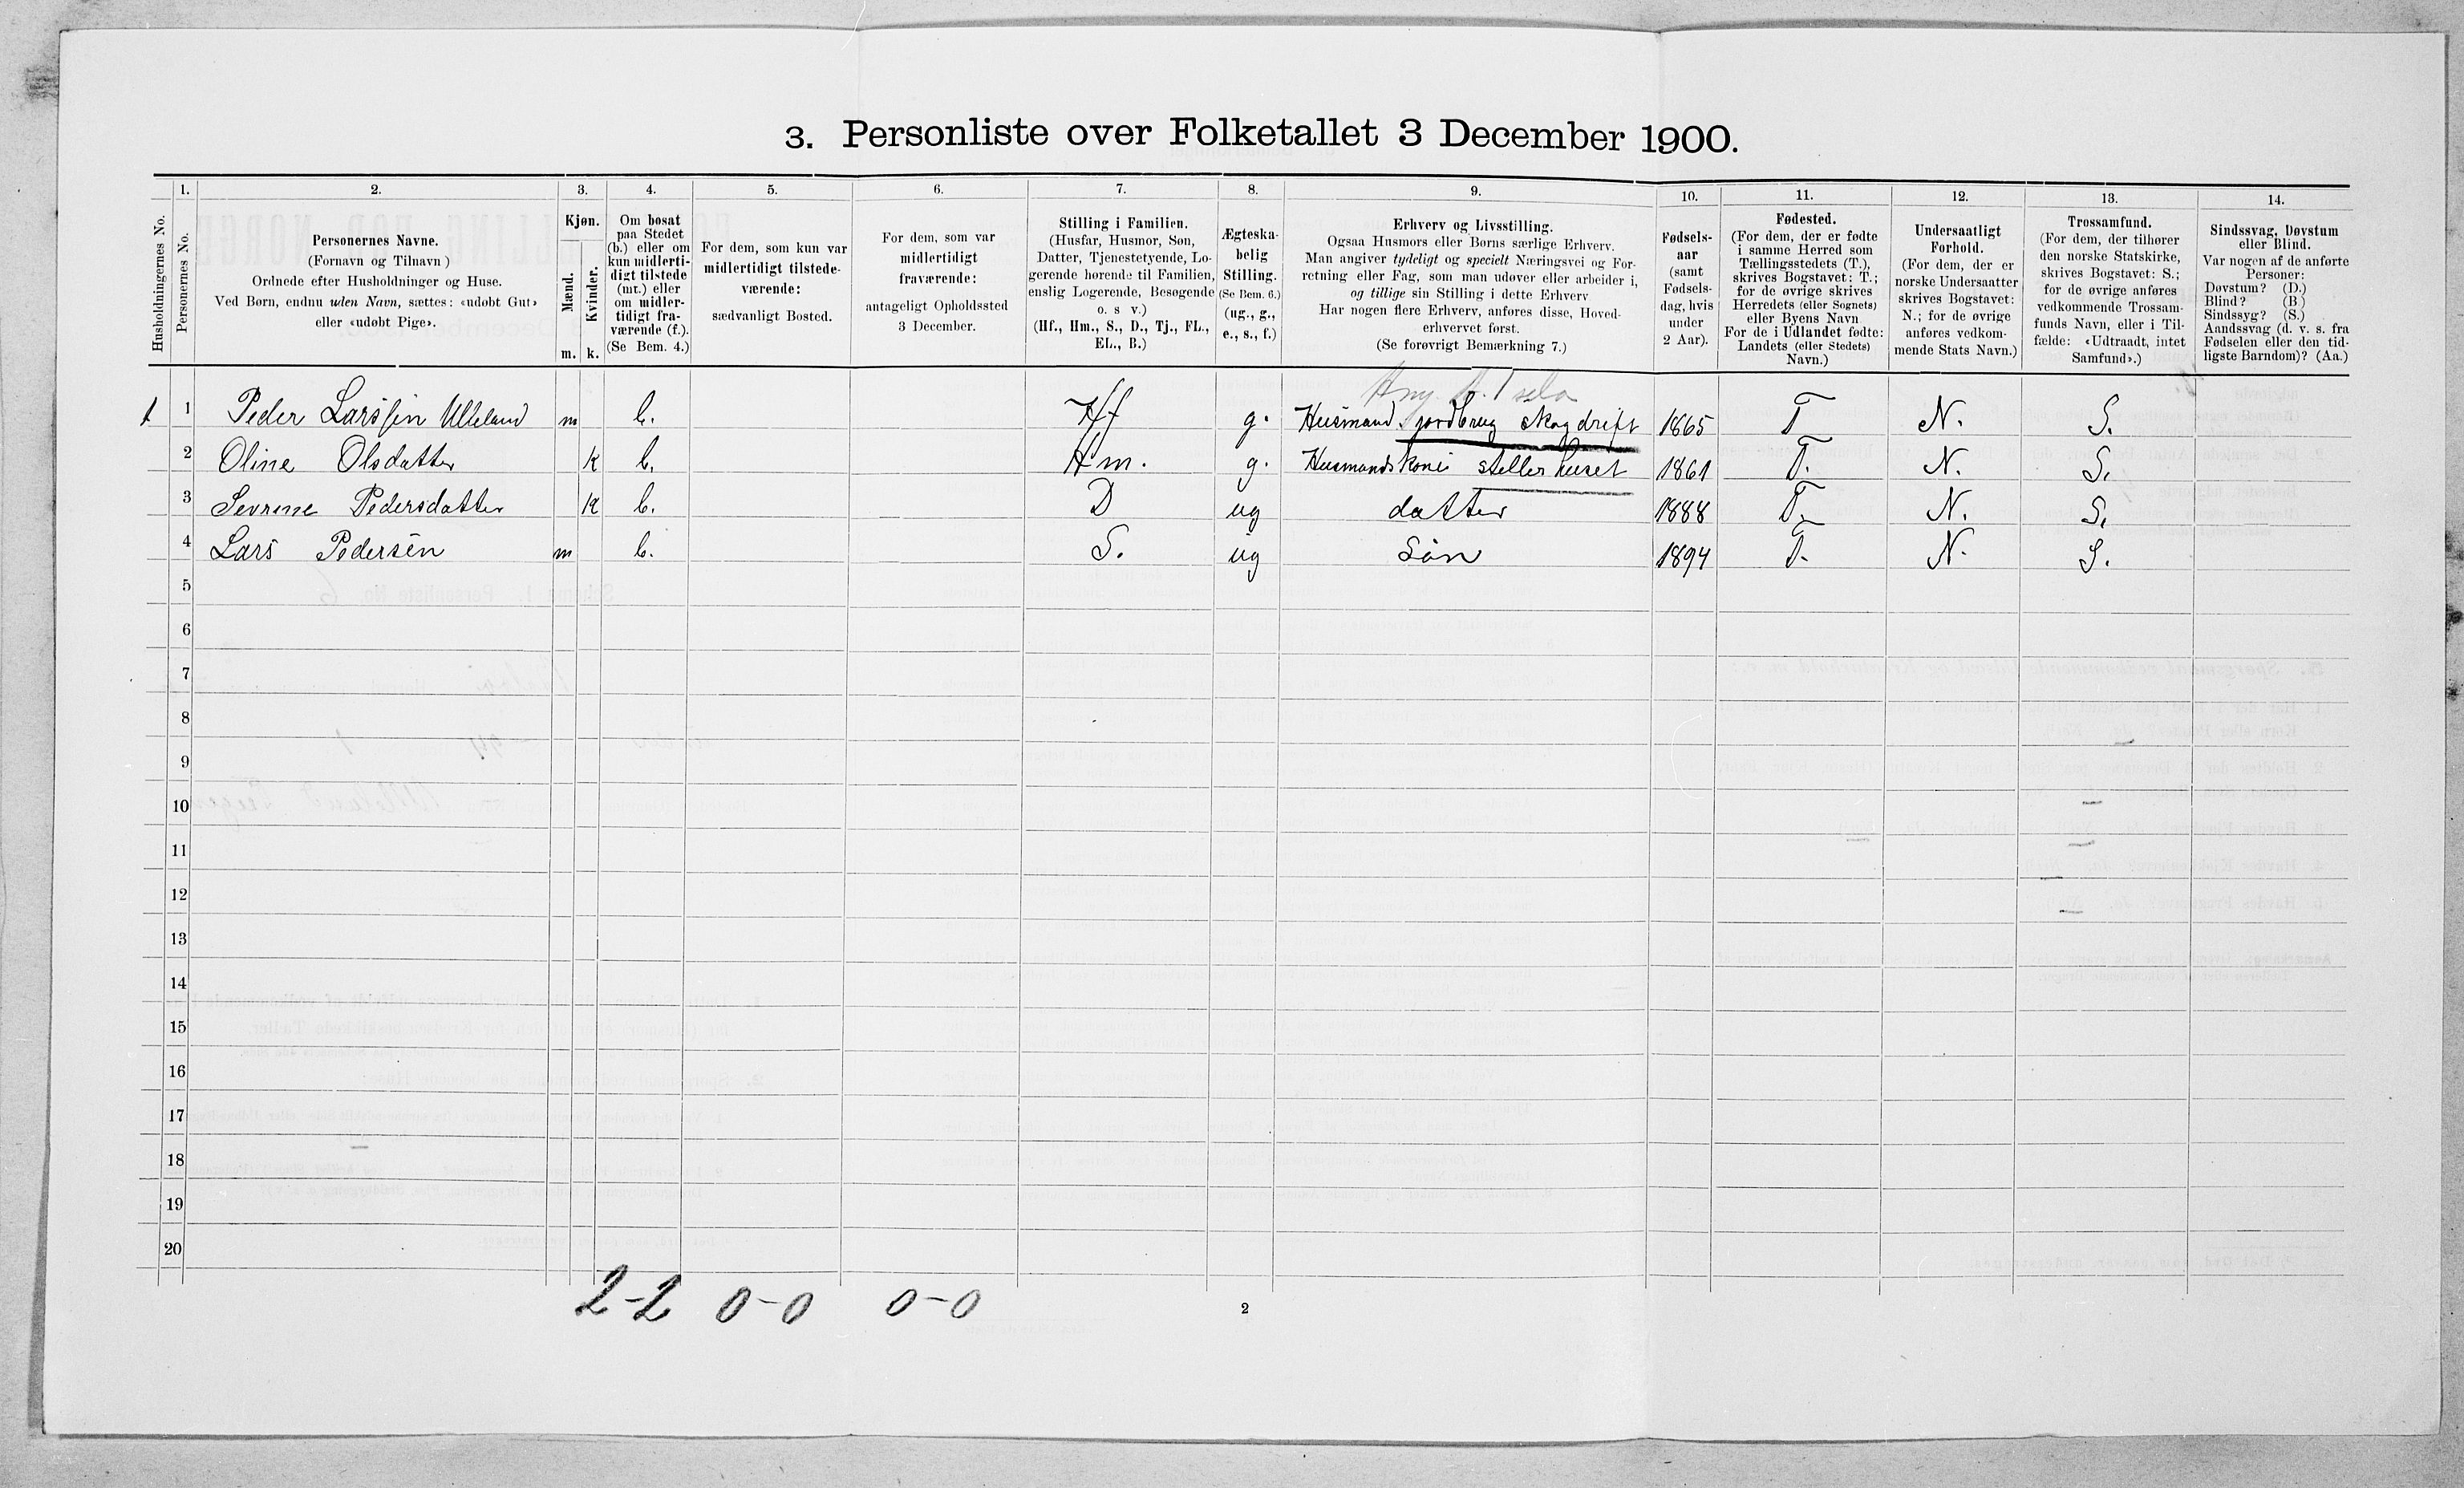 3. Personliste over Folketallet 3 December 1900.
Husholdningernes No.
1.
Personernes No.
2.
Personernes Navne.
(Fornavn og Tilnavn)
Ordnede efter Husholdninger og Huse.
Ved Børn, endnu uden Navn, sættes: «udøbt Gut»
eller «udøbt Pige».
3.
Kjøn.
Mænd.
Kvinder.
m. k.
4.
Om bosat
paa Stedet
(b.) eller om
kun midlerti-
digt tilstede
(mt.) eller
om midler-
tidigt fra-
værende (f.).
(Se Bem. 4.)
5.
For dem, som kun var
midlertidigt tilstede-
værende:
sædvanligt Bosted.
6.
For dem, som var
midlertidigt
fraværende:
antageligt Opholdssted
3 December.
7.
Stilling i Familien.
(Husfar, Husmor, Søn,
Datter, Tjenestetyende, Lo-
gerende hørende til Familien,
enslig Logerende, Besøgende
o. s v.)
(Hf., Hm., S., D., Tj., FL.,
EL., B.)
8.
Ægteska-
belig
Stilling.
(Se Bem. 6.)
(ug., g.,
e., s., f.)
9.
Erhverv og Livsstilling.
Ogsaa Husmors eller Børns særlige Erhverv.
Man angiver tydeligt og specielt Næringsvei og For-
retning eller Fag, som man udøver eller arbeider i,
og tillige sin Stilling i dette Erhverv
Har nogen flere Erhverv, anføres disse, Hoved-
erhvervet først.
(Se forøvrigt Bemærkning 7.)
10.
Fødsels-
aar
(samt
Fødsels-
dag, hvis
under
2 Aar).
11.
Fødested.
(For dem, der er fødte
i samme Herred som
Tællingsstedets (T.),
skrives Bogstavet: T.;
for de øvrige skrives
Herredets (eller Sognets)
eller Byens Navn
For de i Udlandet fødte:
Landets (eller Stedets)
Navn.)
12.
Undersaatligt
Forhold.
(For dem, der er
norske Undersaatter
skrives Bogstavet:
N.; for de øvrige
anføres vedkom-
mende Stats Navn.)
13.
Trossamfund.
(For dem, der tilhører
den norske Statskirke,
skrives Bogstavet: S.;
for de øvrige anføres
vedkommende Trossam-
funds Navn, eller i Til-
fælde: «Udtraadt, intet
Samfund».)
14.
Sindssvag, Døvstum
eller Blind.
Var nogen af de anførte
Personer:
Døvstum? (D.)
Blind? (B)
Sindssyg? (S.)
Aandssvag (d. v. s. fra
Fødselen eller den tid-
ligste Barndom)? (Aa.)
1 1 Peder Larssen Ulleland m b. Hf g. Husmand jordbrug skogdrift 1865 T N. S.
2 Oline Olsdatter k b. Hm. g. Husmandskone steller huset 1861 T. N. S.
3 Sevrine Pedersdatter k b. D ug datter 1888 T. N. S.
4 Lars Pedersen m b. S. ug Søn 1894 T. N. S.
5
6
7
8
9
10
11
12
13
14
15
16
17
18
19
20
2-2 0-0 0-0
2